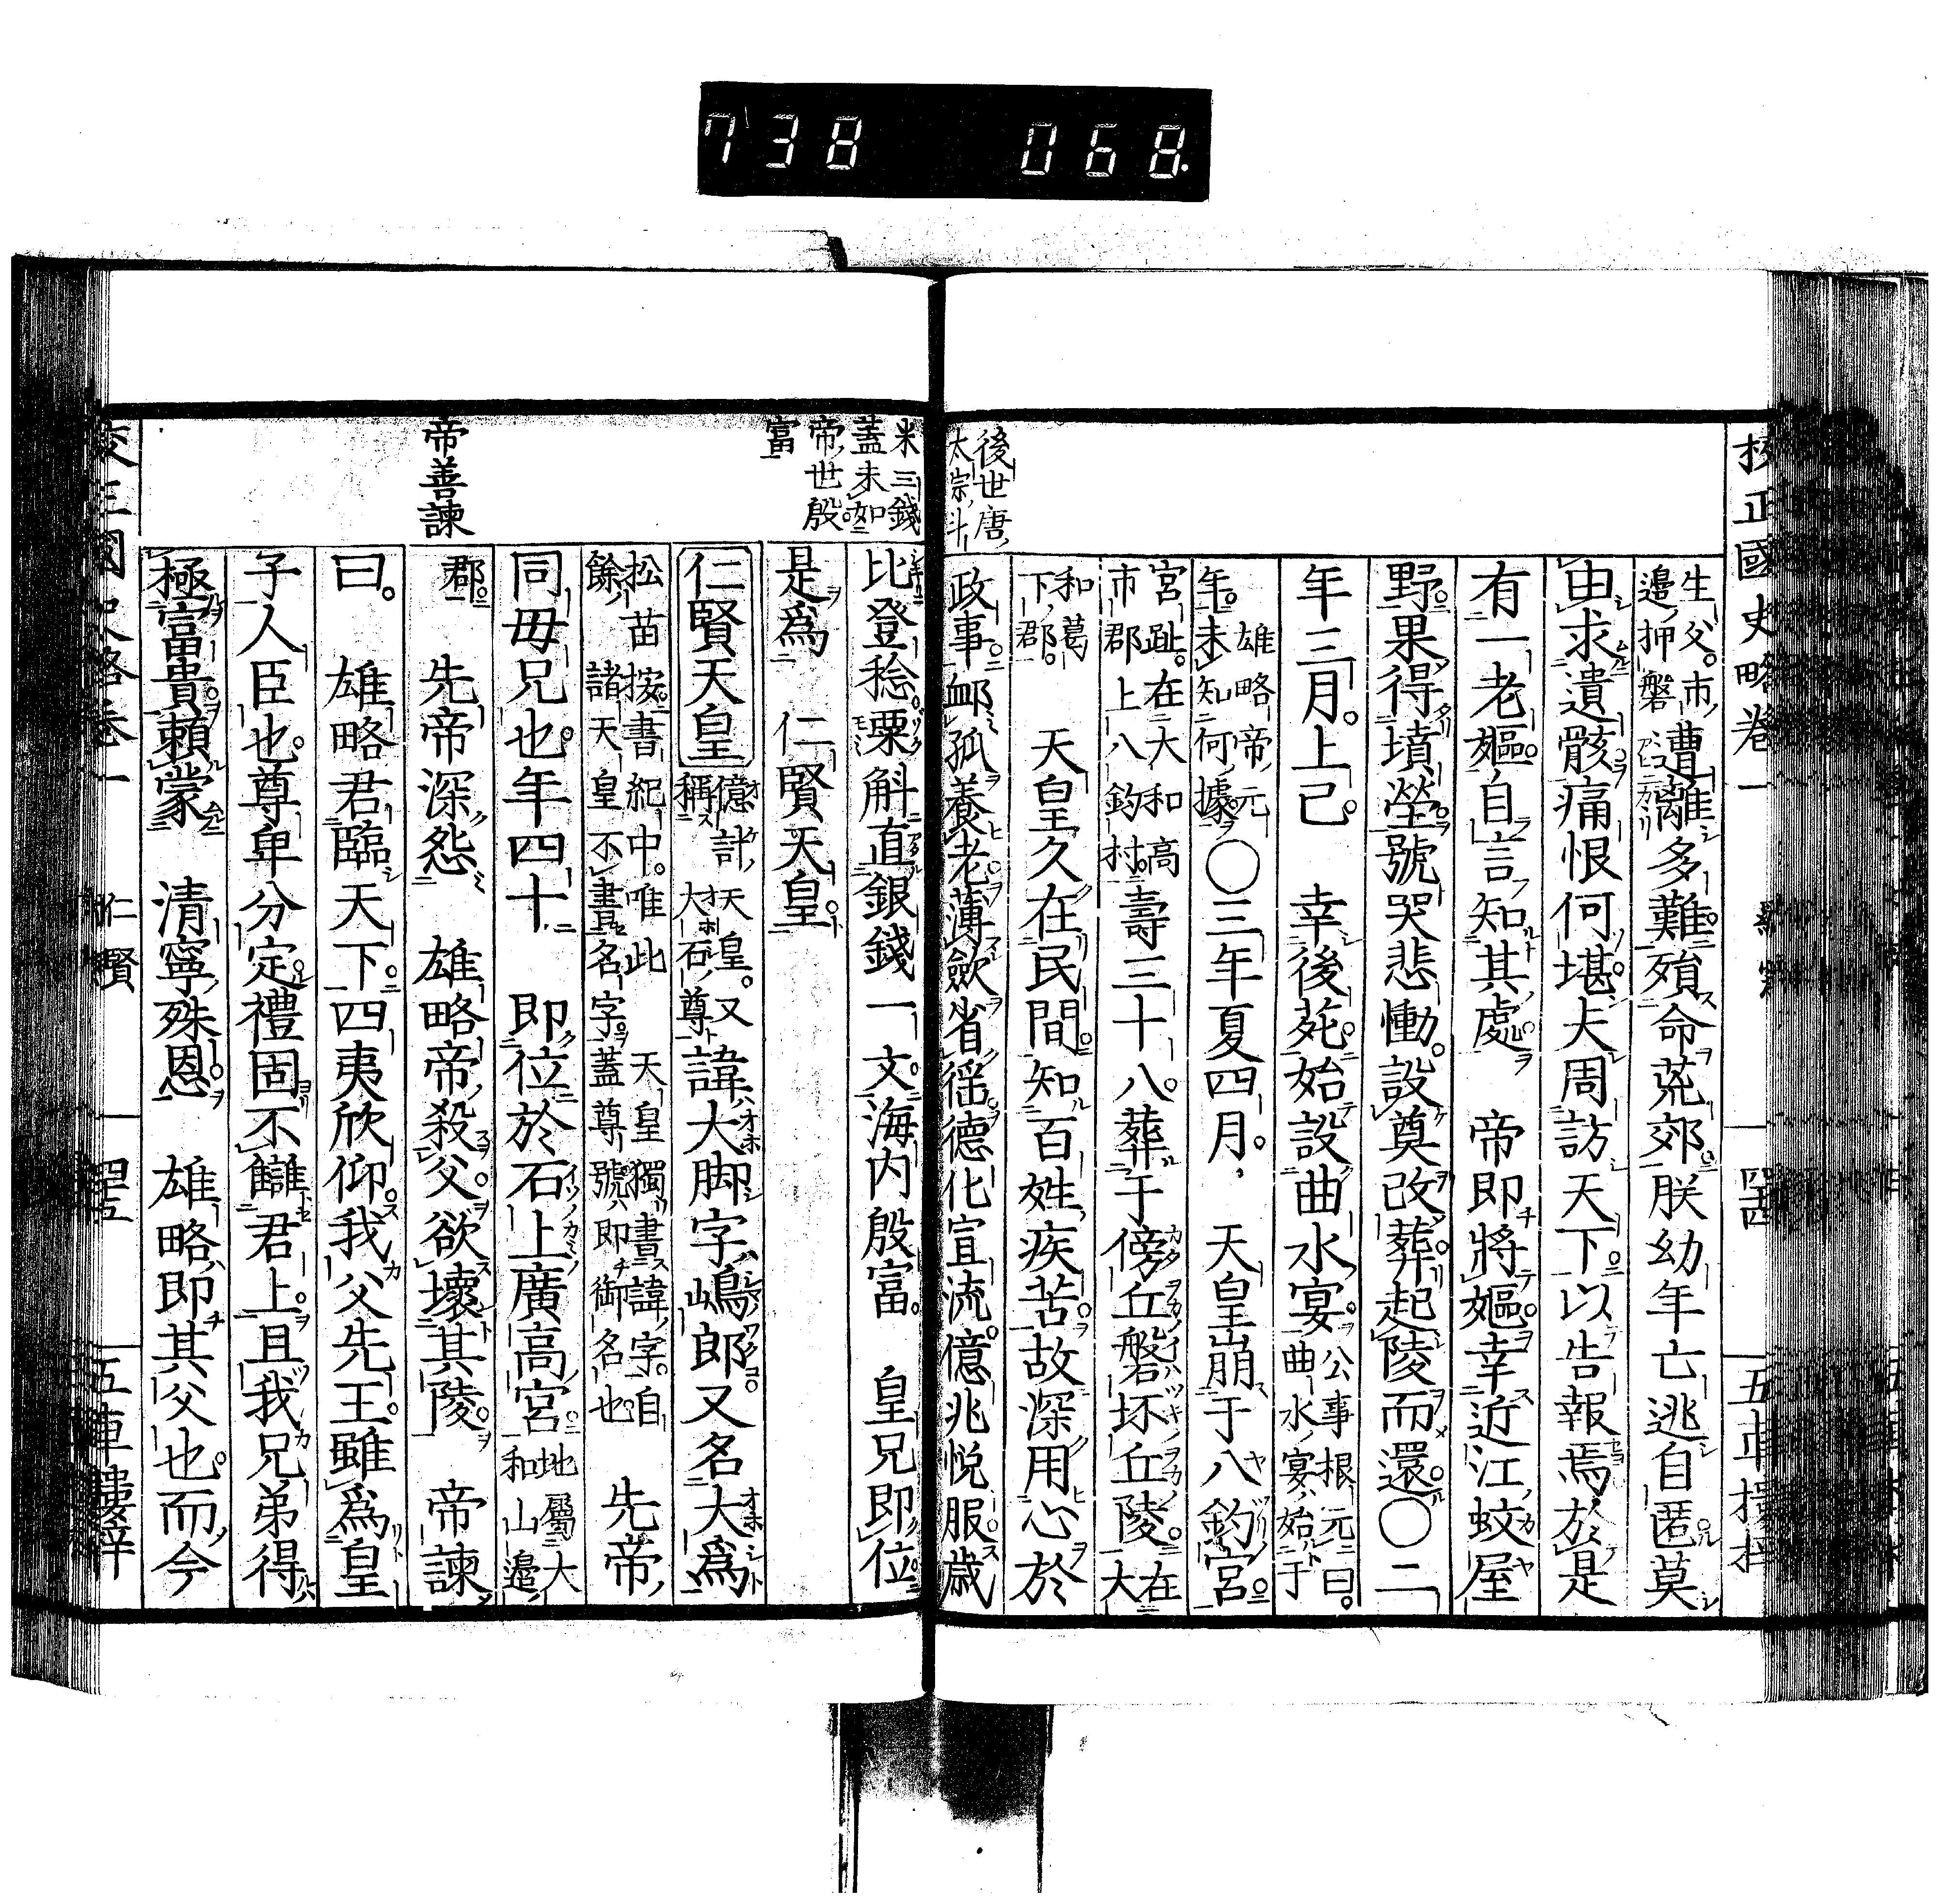 738 068.
校正國史略卷一 顯宗 四四 五車樓梓
生父。市邊押磐遭離多難。殞命荒郊。朕幼年亡逃自匿。莫
由求遺骸。痛恨何堪。夫周訪天下。以告報焉。於是
有一老嫗。自言知其處。 帝即將嫗幸近江蚊屋
野。果得墳塋。號哭悲慟。設奠改葬。起陵而還。〇二
年三月。上巳。 幸後苑。始設曲水宴。公事根元曰。曲水宴。始于
雄略帝元年。未知何據。〇三年夏四月。 天皇崩于八釣宮。
宮趾。在大和高市郡上八釣村。壽三十八。葬于傍丘磐坏丘陵。在大
和葛下郡。 天皇久在民間。知百姓疾苦。故深用心於
政事。卹孤養老。薄斂省徭。德化宣流。億兆悅服。歲
後世唐太宗斗
米三錢蓋未如帝世殷富
比登稔。粟斛直銀錢一文。海內殷富。 皇兄即位。
是為 仁賢天皇。
仁賢天皇 億計天皇。又稱大石尊 諱大脚。字嶋郎。又名大為
松苗按。書紀中。唯此 天皇獨書諱字。自餘諸天皇不書名字。蓋尊號即御名也 先帝
同母兄也。年四十 即位於石上廣高宮 地屬大和山邊
郡。 先帝深怨 雄略帝殺父。欲壞其陵。 帝諫
帝善諫
曰。 雄略君臨天下。四夷欣仰。我父先王。雖為皇
子。人臣也。尊卑分定。禮固不讎君上。且我兄弟得
極富貴。賴蒙 清寧殊恩。 雄略即其父也。而今
校正國史略卷一 仁賢 四五 五車樓梓